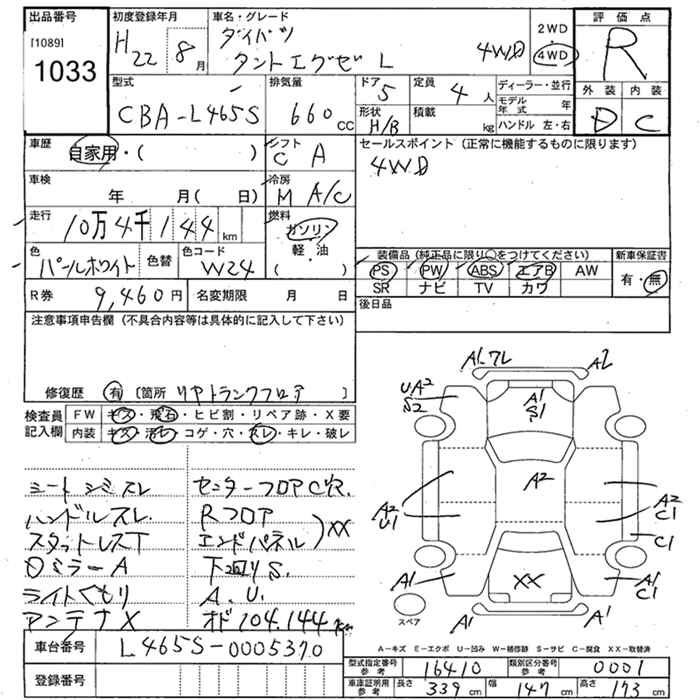 出品番号 [1089] 1033
初度登録年月 H22 8月
車名・グレード ダイハツ タントエグゼ L 4WD
2WD 4WD
評価点 R
外装 D 内装 C
型式 CBA-L465S
排気量 660cc
ドア 5
形状 H/B
定員 4人
積載 kg
ディーラー・並行
モデル年式 年
ハンドル 左・右
車歴 自家用・( )
シフト C A
セールスポイント (正常に機能するものに限ります)
4WD
車検 年 月( 日)
冷房 M A/C
走行 10万4千144km
燃料 ガソリン・軽・油 ( )
色 パールホワイト 色替 色コード W24
装備品 (純正品に限り○をつけてください)
PS PW ABS エアB AW
SR ナビ TV カワ
新車保証書 有・無
R券 9,460円 名変期限 月 日
後日品
注意事項申告欄 (不具合内容等は具体的に記入して下さい)
修復歴 有 [箇所 リヤトランクフロア ]
検査員記入欄
FW キズ・飛石・ヒビ割・リペア跡・X要
内装 キズ・汚レ・コゲ・穴・スレ・キレ・破レ
シートシミスレ センターフロアC穴.
ハンドルスレ. Rフロア
スタットレスT エンドパネル )XX
ミラーA 下回りS.
ライトくもり A.U.
アンテナX オド104.144km
A1.7L A2
UA2 S2
A1 S1
A2
A2 U1
A2 C1
C1
A1 XX A1 C1
A1 A1
スペア
A-キズ E-エクボ U-凹み W-補修跡 S-サビ C-腐食 XX-取替済
車台番号 L465S-0005370
登録番号
型式指定番号 参考 16410 類別区分番号 参考 0001
車庫証明用 参考 長さ 339cm 幅 147cm 高さ 173cm